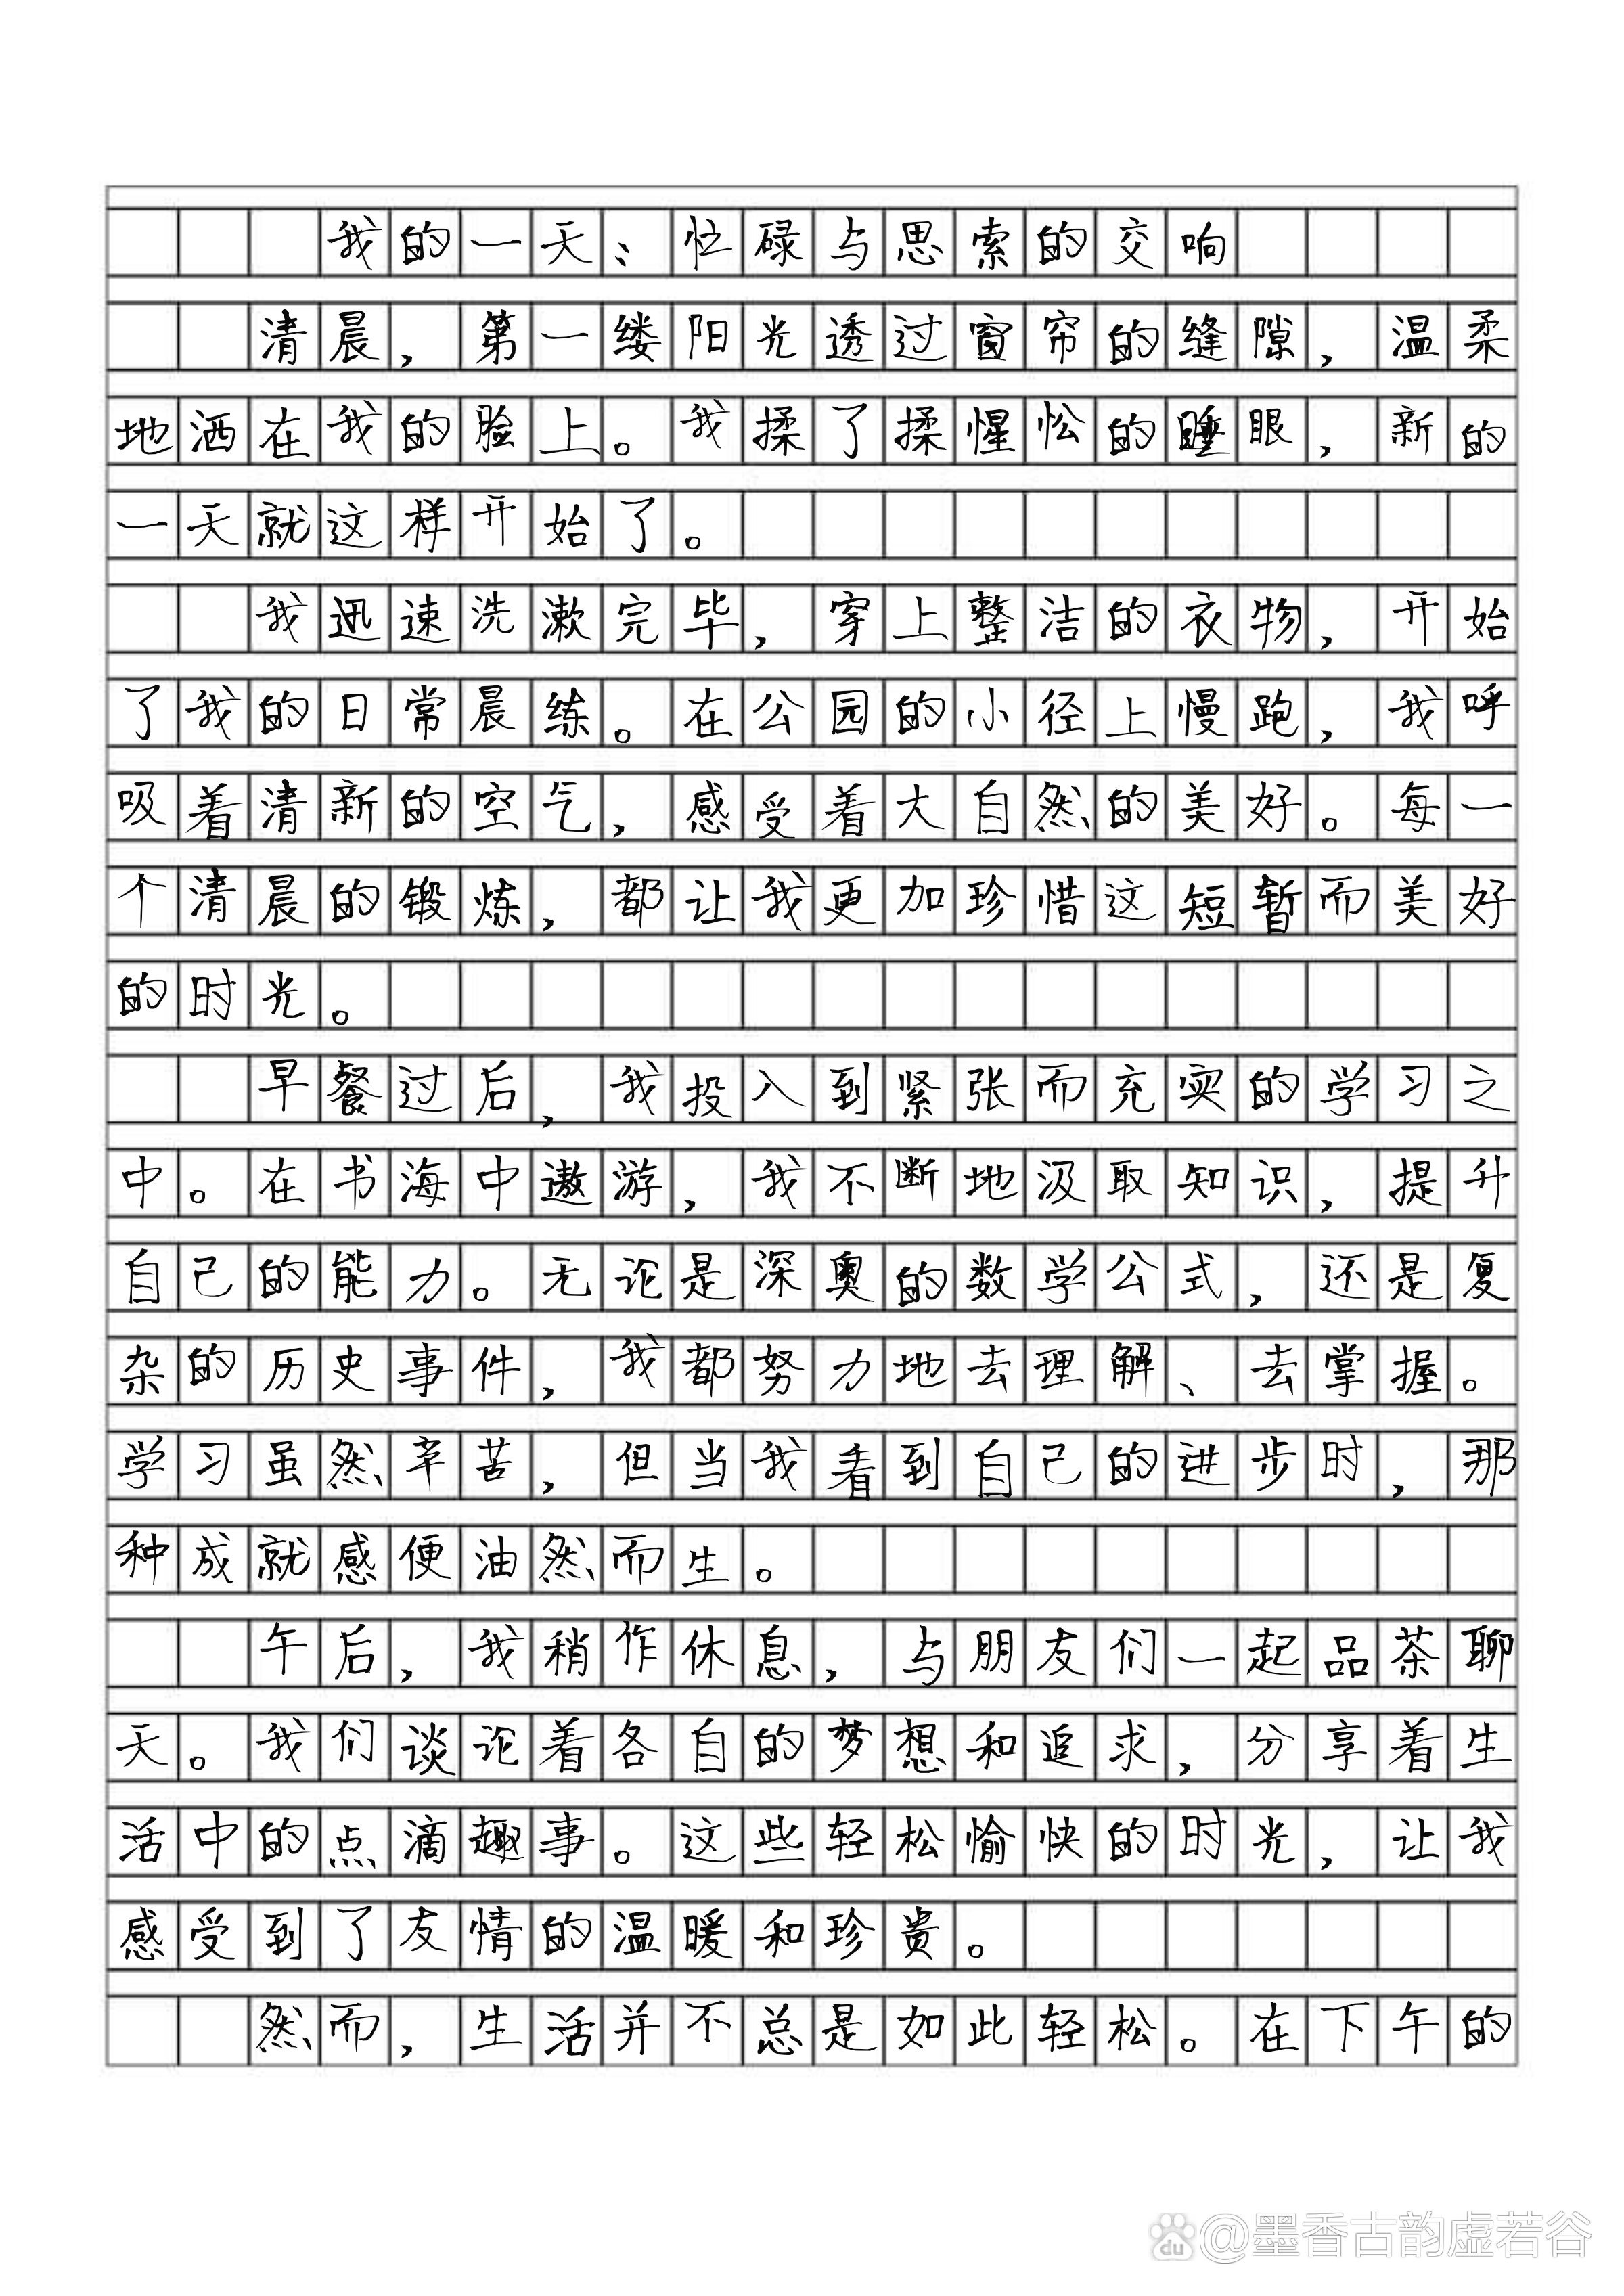 我的一天：忙碌与思索的交响
清晨，第一缕阳光透过窗帘的缝隙，温柔
地洒在我的脸上。我揉了揉惺忪的睡眼，新的
一天就这样开始了。
我迅速洗漱完毕，穿上整洁的衣物，开始
了我的日常晨练。在公园的小径上慢跑，我呼
吸着清新的空气，感受着大自然的美好。每一
个清晨的锻炼，都让我更加珍惜这短暂而美好
的时光。
早餐过后，我投入到紧张而充实的学习之
中。在书海中遨游，我不断地汲取知识，提升
自己的能力。无论是深奥的数学公式，还是复
杂的历史事件，我都努力地去理解、去掌握。
学习虽然辛苦，但当我看到自己的进步时，那
种成就感便油然而生。
午后，我稍作休息，与朋友们一起品茶聊
天。我们谈论着各自的梦想和追求，分享着生
活中的点滴趣事。这些轻松愉快的时光，让我
感受到了友情的温暖和珍贵。
然而，生活并不总是如此轻松。在下午的
du @墨香古韵虚若谷